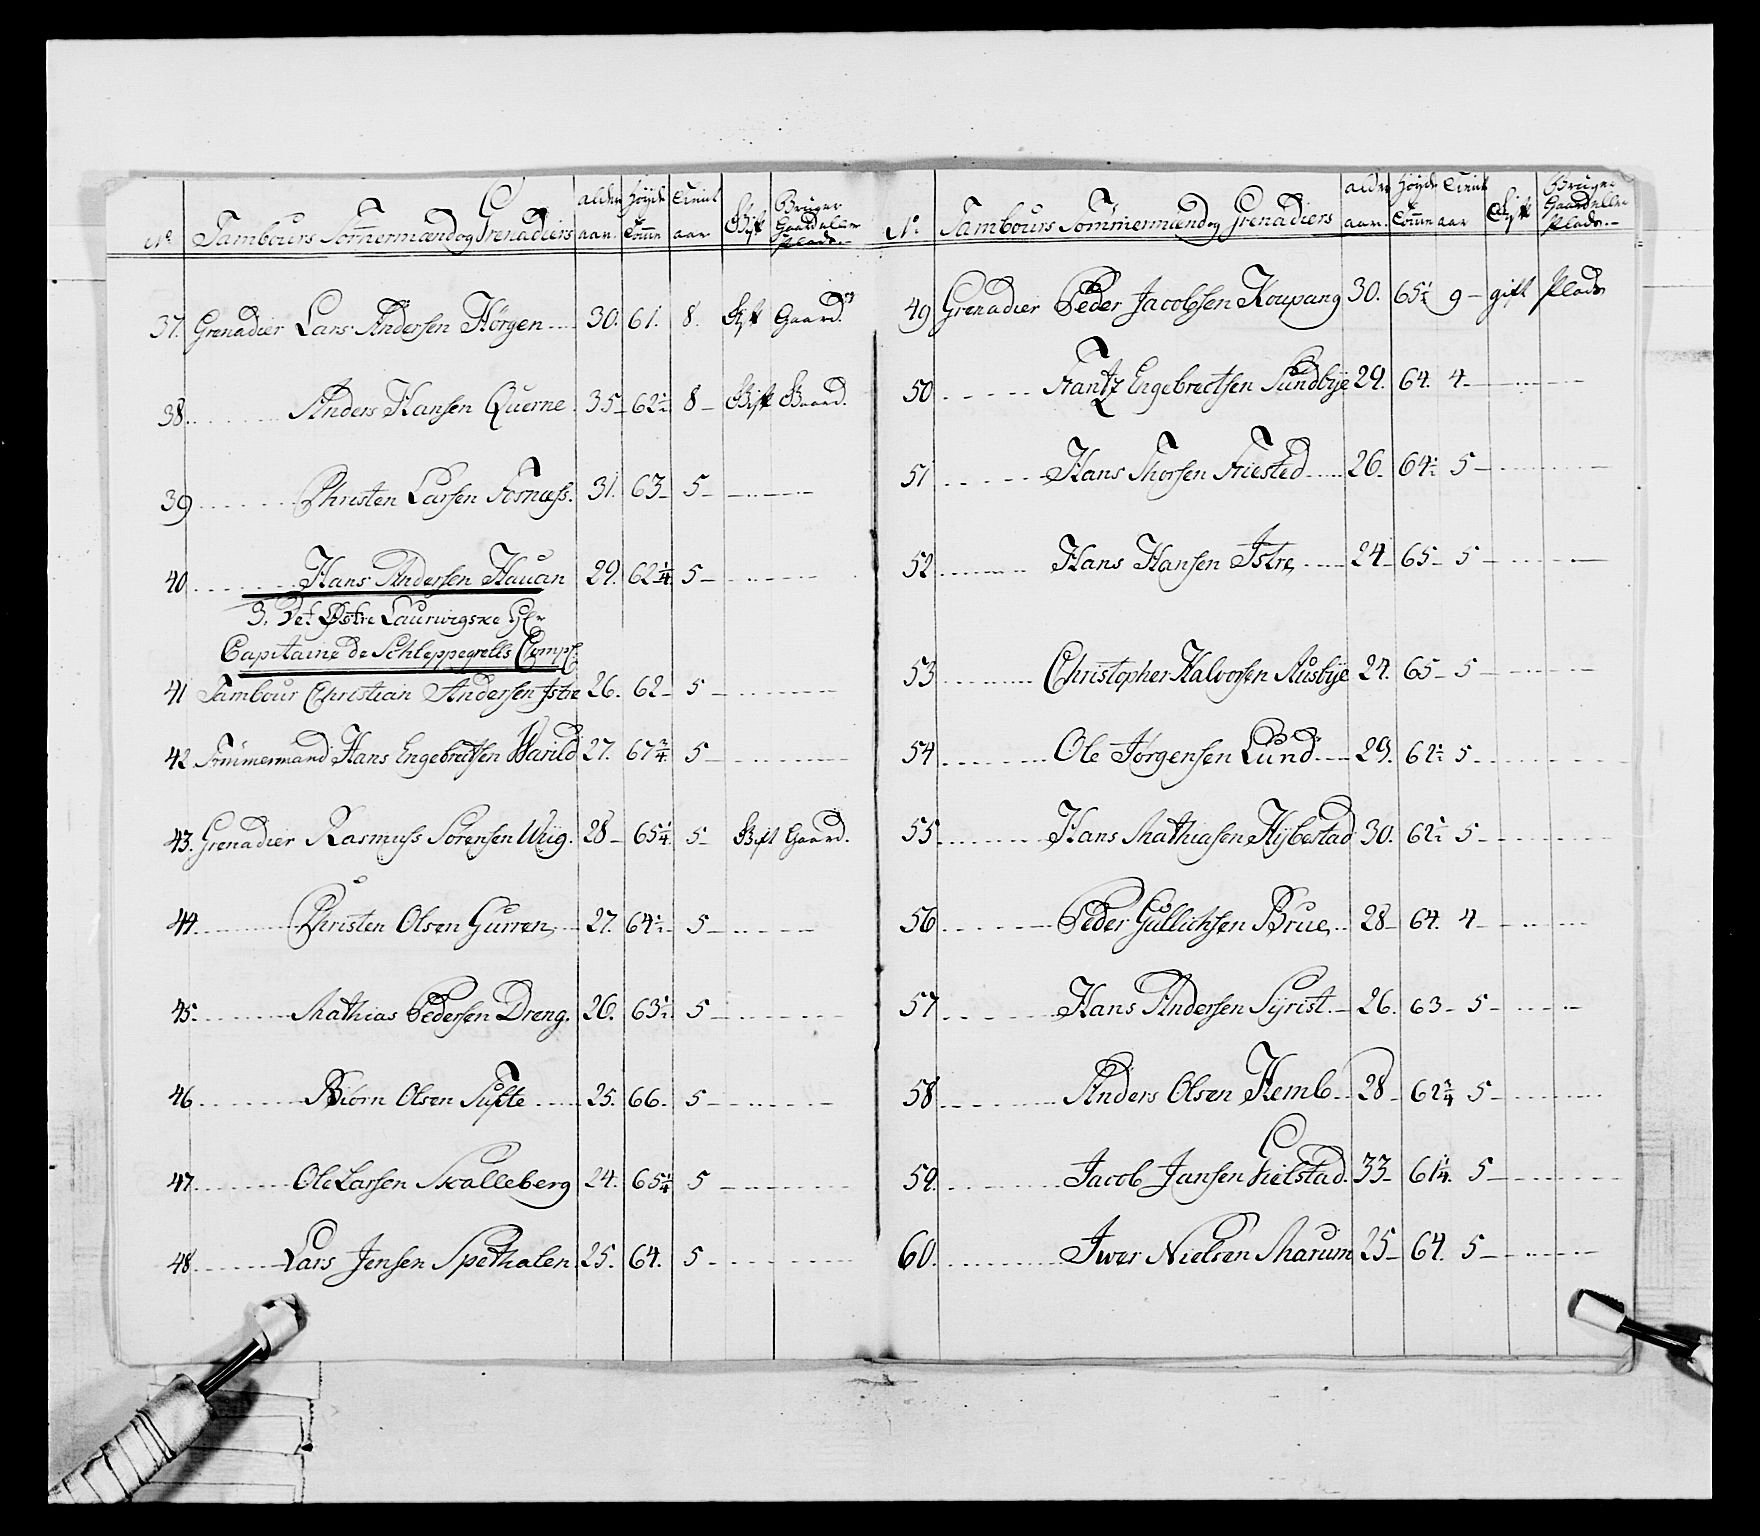 No Tambours Tømermænd og Grenadiers alder aar. Høyde Tomme Tienist aar Gift Bruger Gaard eller Plads.
37. Grenadier Lars Andersen Hørgen 30. 61. 8. Gift Gaard
38. Anders Hansen Querne 35 62½ 8 Gift Gaard.
39 Christen Larsen Fosnæss. 31. 63 5
40 Hans Andersen Hauan 29. 62¼ 5
3. Det Østre Laurwigske Hr
Capitaine de Schleppegrells Comp.
41 Tambour Christian Andersen Istre 26. 62 5
42 Tømmermand Hans Engebretsen Warild 27. 67¾ 5
43. Grenadier Rasmuss Sørensen Wiig. 28 65¼ 5 Gift Gaard.
44 Christen Olsen Gurren 27. 64½ 5
45. Mathias Pedersen Dreng. 26. 63½ 5
46 Biørn Olsen Tufte 25. 66. 5
47 Ole Larsen Skalleberg 24. 65¾ 5
48 Lars Jensen Spethalen 25. 64. 5
No Tambours Tømmermænd og Grenadiers alder aar. Høyde Tomme Tienist aar Gift Bruger Gaard eller Plads.
49 Grenadier Peder Jacobsen Koupang 30. 65½ 9 gift Plads
50 Frantz Engebrectsen Sundbye 29. 64. 4
51 Hans Thorsen Friested 26. 64½ 5
52 Hans Hansen Istre 24 65 5
53 Christopher Halvorsen Ausbye 24. 65 5
54 Ole Jørgensen Lund 29. 62½ 5
55 Hans Mathiasen Hybestad 30. 62½ 5
56 Peder Gullichsen Brue 28 64. 4
57 Hans Andersen Syrist. 26. 63 5
58 Anders Olsen Hemb 28 62¾ 5
59. Jacob Jansen Gielstad. 33 61¼. 5
60. Iwer Nielsen Marum 25 64. 5